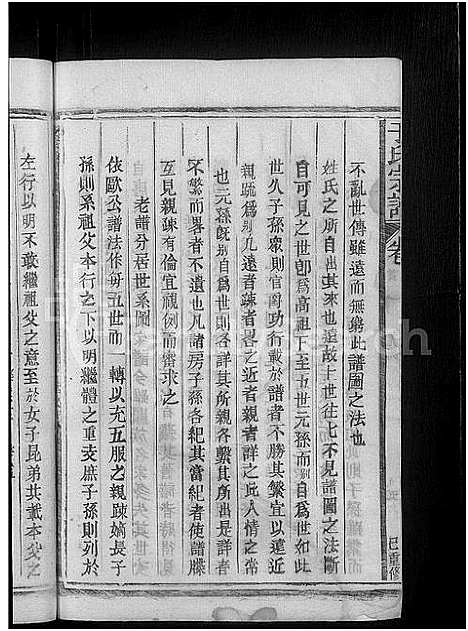 不亂世傳雖遠而無窮此譜圖之法也
姓氏之所自出其來也遠故上世往七不見譜圖之法斷
自可見之世卽爲高祖下至五世元孫而別自爲世如此
世久子孫衆則官閥功行載於譜者不勝其繁宜以遠近
親疏爲别凡遠者疎者畧之近者親者詳之此人情之常
也元孫既别自爲世則各詳其所親各繫其所出是詳者
不繁而畧者不遺也凡諸房子孫各紀其當紀者使譜牒
互見親疎有倫宜視例而審求之
老譜分居世系圖
依歐公譜法作每五世而一轉以充五服之親疎嫡長子
孫則系祖父本行之下以明繼體之重支庶子孫則列於
左行以明不敢繼祖父之意至於女子昆弟共載本父之
氏宗譜
卷
重修